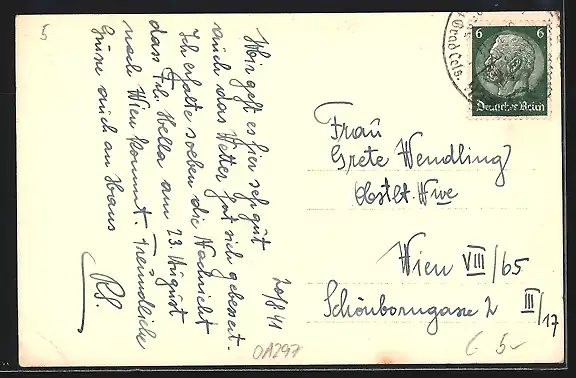 5
20/8 41
Mir geht es hier sehr gut
auch das Wetter hat sich gebessert.
Ich erhalte soeben die Nachricht
dass Frl. Hella am 23. August
nach Wien kommt. Freundliche
Grüsse auch an Hans
RS.
6 6
Deutsches Reich
Frau
Grete Wendling
Obstlt. Wwe
Wien VIII/65
Schönborngasse 2 III/17
OA297
5-